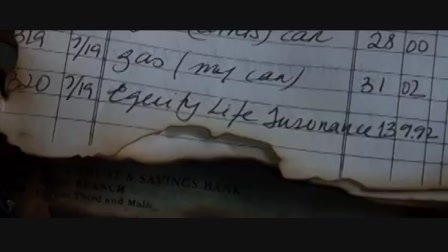 (        ) car 28 00
319 7/19 gas (my car) 31 02
320 7/19 Equity Life Insurance 139.92
TRUST & SAVINGS BANK
BRANCH
Third and Main